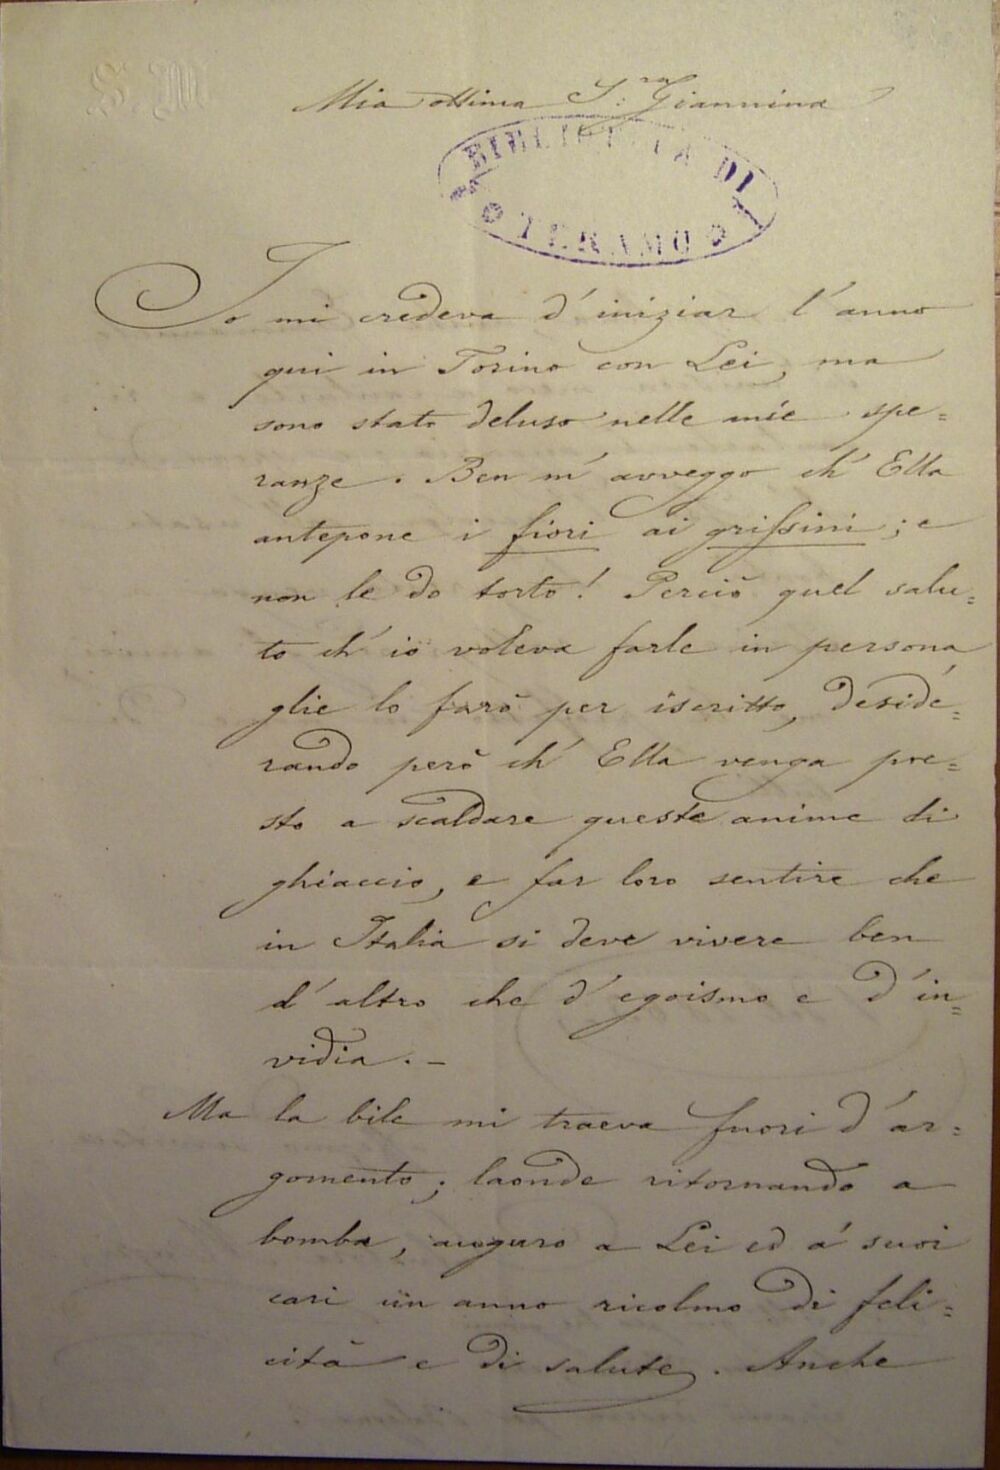 S. M.
Mia ottima S:ra Giannina
BIBLIOTECA DI
TERAMO
Io mi credeva d'iniziar l'anno
qui in Torino con Lei, ma
sono stato deluso nelle mie spe=
ranze. Ben m'avveggo ch'Ella
antepone i fiori ai grissini; e
non le do torto! Perciò quel salu=
to ch'io voleva farle in persona,
glie lo farò per iscritto, deside=
rando però ch'Ella venga pre=
sto a scaldare queste anime di
ghiaccio, e far loro sentire che
in Italia si deve vivere ben
d'altro che d'egoismo e d'in=
vidia. –
Ma la bile mi traeva fuori d'ar=
gomento; laonde ritornando a
bomba, auguro a Lei ed a' suoi
cari un anno ricolmo di feli=
cità e di salute. Anche